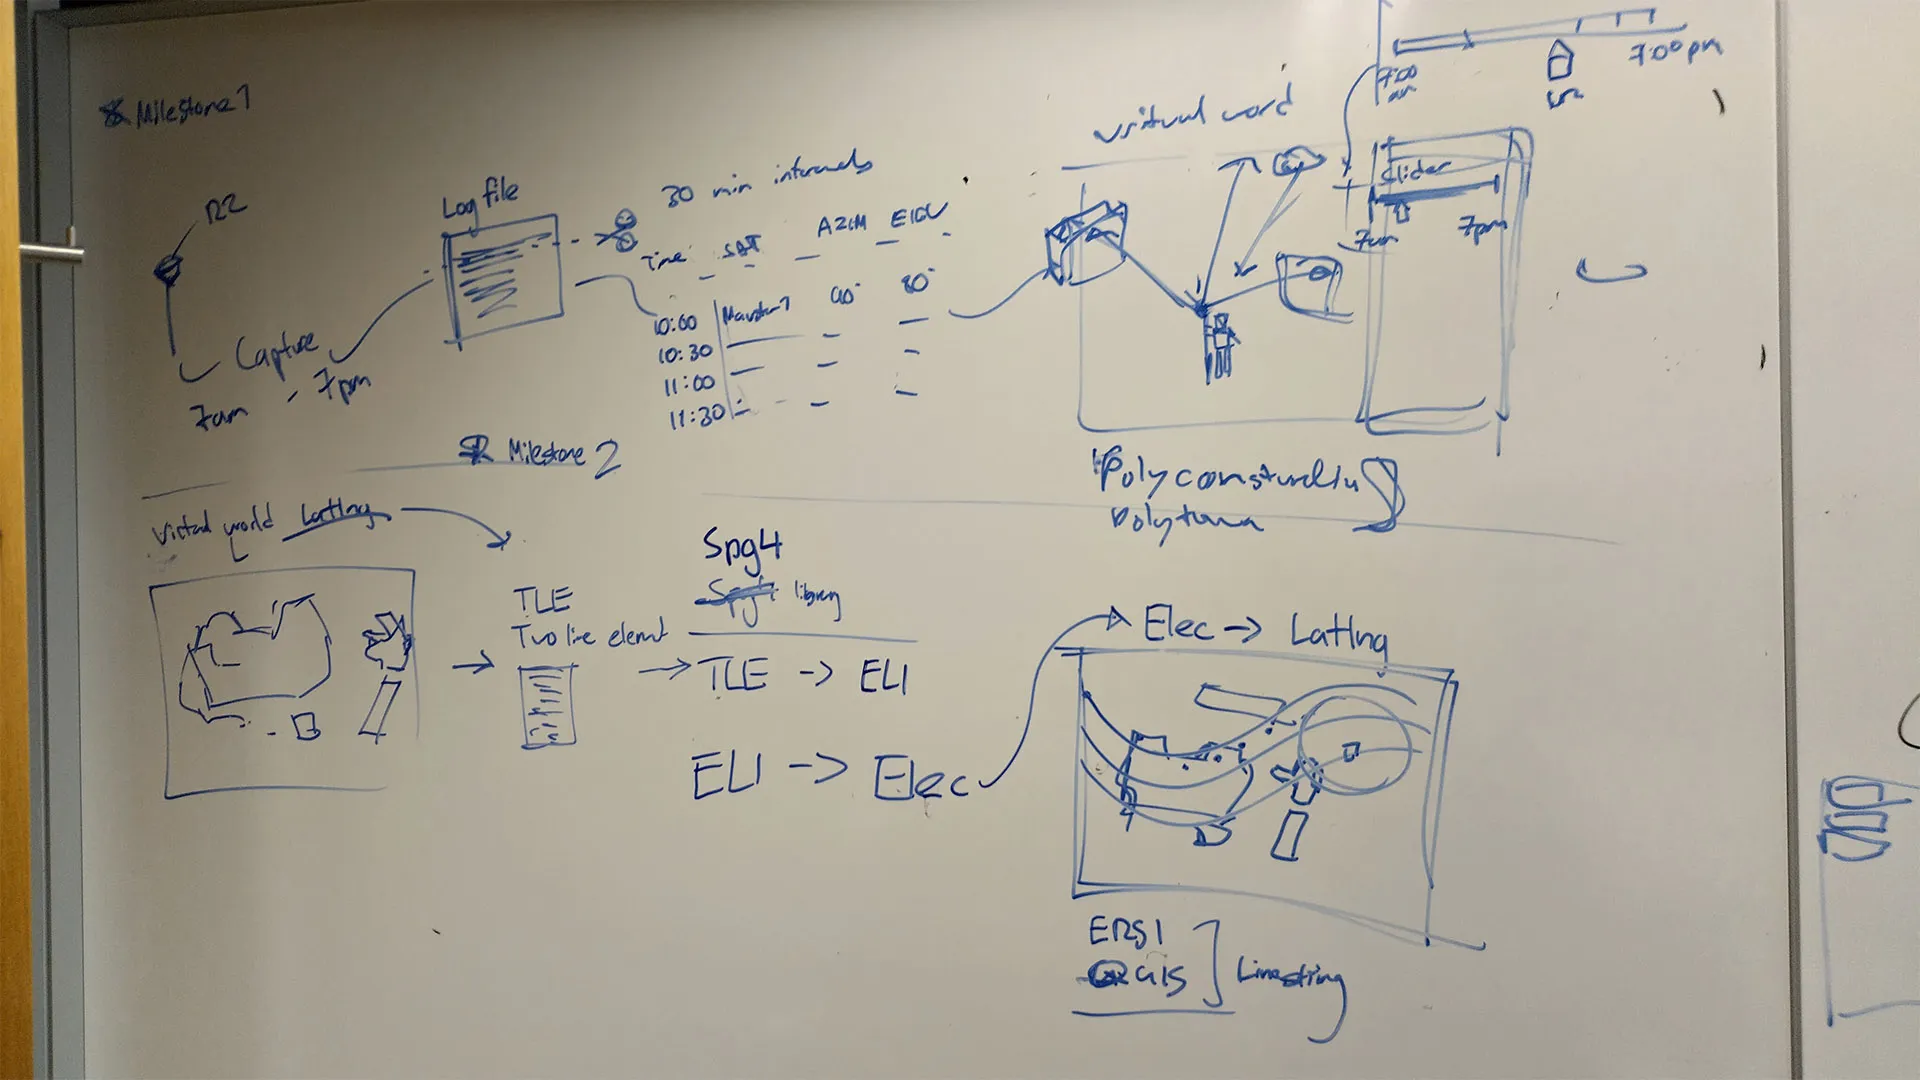 Milestone 1
R2
Capture
7am - 7pm
Log file
30 min intervals
Time SAT AZIM ELEV
10:00 90° 80°
10:30
11:00
11:30
virtual word
Slider
7am 7pm
7:00 am
7:00 pm
Milestone 2
Virtual world Latlng
TLE
Two line elemnt
Spg4
library
TLE -> ELI
ELI -> Elec
Elec -> Latlng
ERSI
QGIS
Linestring